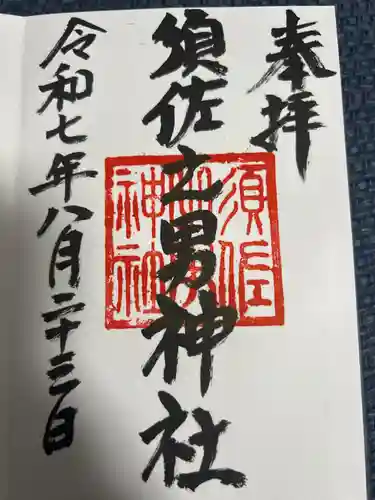 奉拝
須佐之男神社
須佐
之男
神社
令和七年八月二十三日